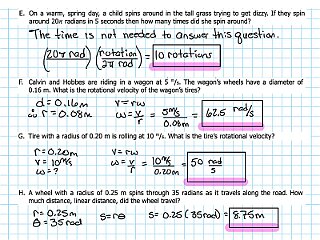 E. On a warm, spring day, a child spins around in the tall grass trying to get dizzy. If they spin
around 20π radians in 5 seconds then how many times did she spin around?
The time is not needed to answer this question.
(20π rad) (rotation / 2π rad) = 10 rotations
F. Calvin and Hobbes are riding in a wagon at 5 m/s. The wagon's wheels have a diameter of
0.16 m. What is the rotational velocity of the wagon's tires?
d = 0.16m v = rω
∴ r = 0.08m ω = v/r = 5 m/s / 0.08m = 62.5 rad/s
G. Tire with a radius of 0.20 m is rolling at 10 m/s. What is the tire's rotational velocity?
r = 0.20m v = rω
v = 10 m/s ω = v/r = 10 m/s / 0.20m = 50 rad/s
ω = ?
H. A wheel with a radius of 0.25 m spins through 35 radians as it travels along the road. How
much distance, linear distance, did the wheel travel?
r = 0.25m s = rθ s = 0.25 (35rad) = 8.75m
θ = 35 rad